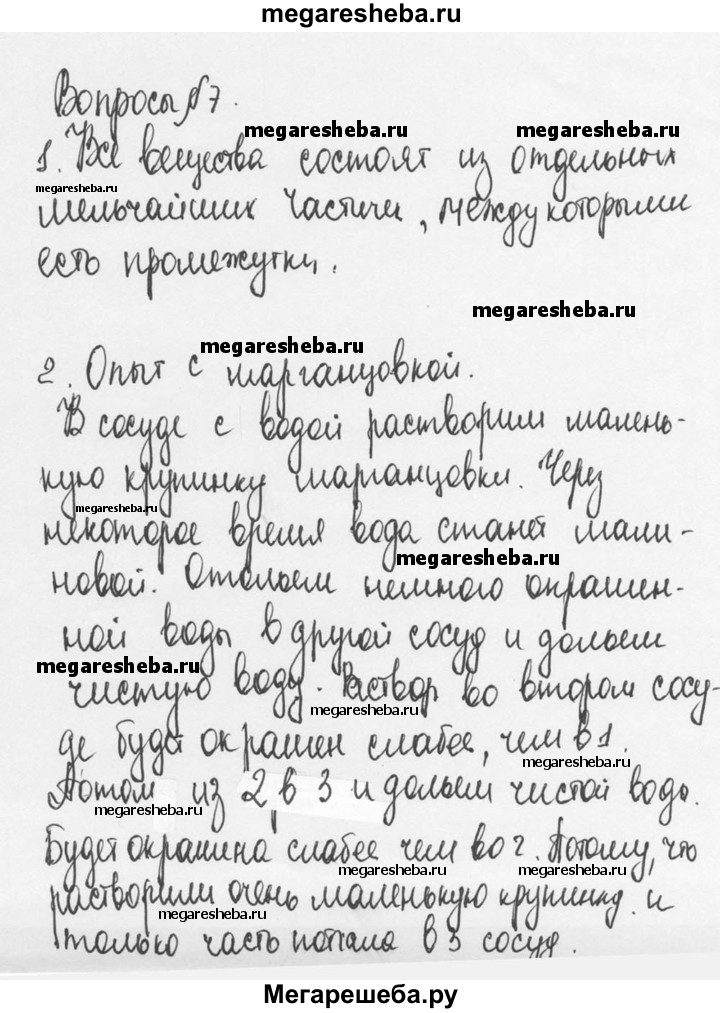 megaresheba.ru
Вопросы §7.
megaresheba.ru megaresheba.ru
1. Все вещества состоят из отдельных
megaresheba.ru
мельчайших частичи, между которыми
есть промежутки.
megaresheba.ru
megaresheba.ru
2. Опыт с марганцовкой.
В сосуде с водой растворим малень-
кую крупинку марганцовки. Через
megaresheba.ru
некоторое время вода станет мали-
megaresheba.ru
новой. Отольем немного окрашен-
ной воды в другой сосуд и дольем
megaresheba.ru
чистую воду. Раствор во втором сосу-
megaresheba.ru
де будет окрашен слабее, чем в 1.
megaresheba.ru
Потом из 2 в 3 и дольем чистой воды.
megaresheba.ru
Будет окрашена слабее чем во 2. Потому, что
megaresheba.ru
растворили очень маленькую крупинку и
megaresheba.ru megaresheba.ru
только часть попала в 3 сосуд.
Мегарешеба.ру